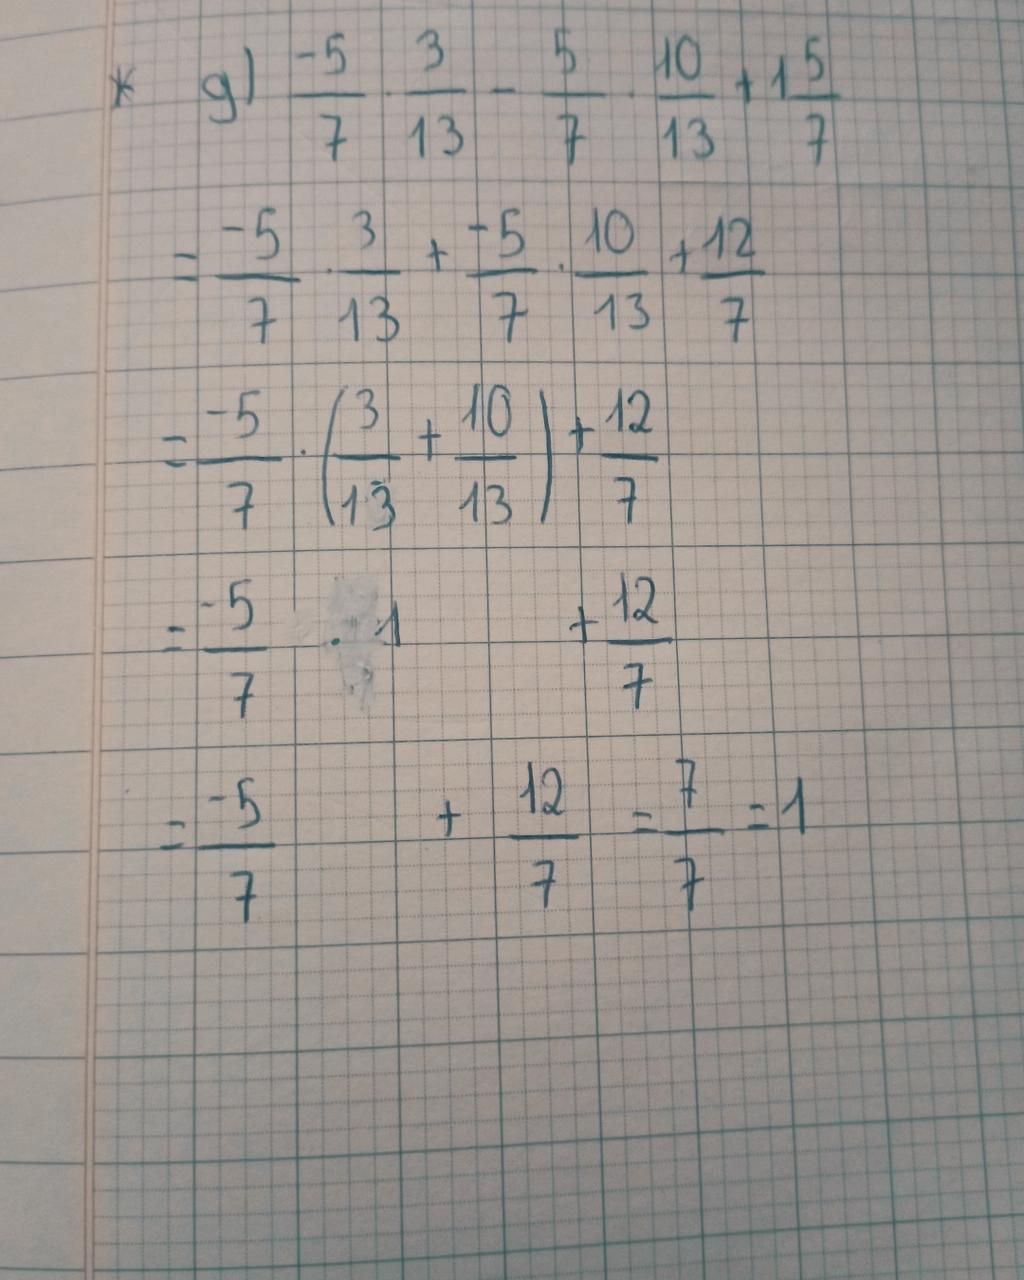 * g) -5/7 · 3/13 - 5/7 · 10/13 + 1 5/7
= -5/7 · 3/13 + -5/7 · 10/13 + 12/7
= -5/7 · (3/13 + 10/13) + 12/7
= -5/7 · 1 + 12/7
= -5/7 + 12/7 = 7/7 = 1